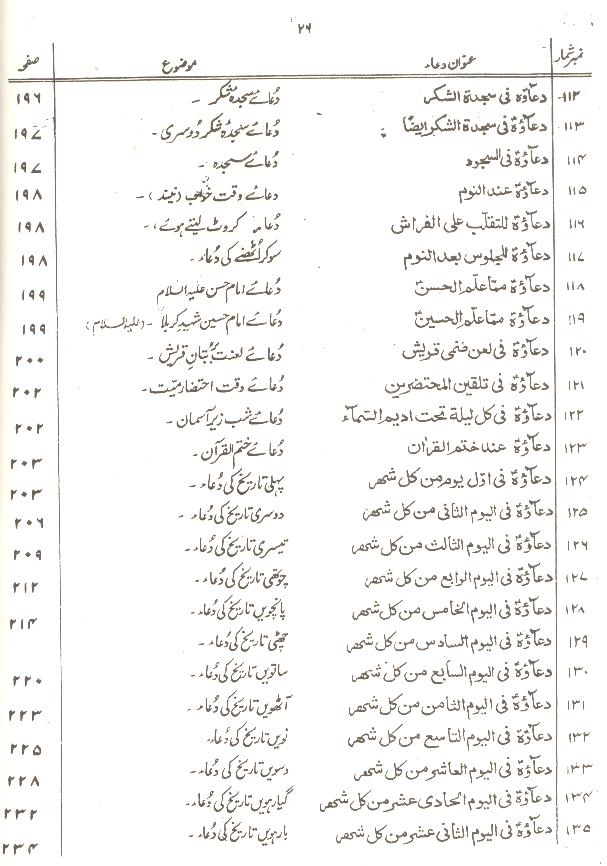 ۲۶
نمبر شمار عنوان دعاء موضوع صفحہ
۱۱۲ دعآؤہٗ فی سجدۃ الشکر دُعائے سجدہ شکر ۔ ۱۹۶
۱۱۳ دعآؤہٗ فی سجدۃ الشکر ایضًا دُعائے سجدۂ شکر دُوسری ۔ ۱۹۷
۱۱۴ دعآؤہٗ فی السجود دُعائے سجدہ ۔ ۱۹۷
۱۱۵ دعآؤہٗ عند النوم دعائے وقت خواب (نیند) ۔ ۱۹۸
۱۱۶ دعآؤہٗ للتقلّب علی الفراش دُعاء کروٹ لیتے ہوئے ۔ ۱۹۸
۱۱۷ دعآؤہٗ للجلوس بعد النوم سوکر اُٹھنے کی دُعاء ۔ ۱۹۸
۱۱۸ دعآؤہٗ ممّا علّم الحسنؑ دُعائے امام حسن علیہ السلام ۱۹۹
۱۱۹ دعآؤہٗ ممّا علّم الحسینؑ دُعائے امام حسین شہیدِ کربلا ۔ (علیہ السلام) ۱۹۹
۱۲۰ دعآؤہٗ فی لعن صنمی قریش دُعائے لعنت بر بُتانِ قریش ۔ ۲۰۰
۱۲۱ دعآؤہٗ فی تلقین المحتضرین دُعائے وقت احتضار میّت ۔ ۲۰۲
۱۲۲ دعآؤہٗ فی کل لیلۃ تحت ادیم السّمآء دُعائے شب زیر آسمان ۔ ۲۰۲
۱۲۳ دعآؤہٗ عند ختم القرآن دُعائے ختم القرآن ۔ ۲۰۳
۱۲۴ دعآؤہٗ فی اوّل یوم من کل شھر پہلی تاریخ کی دُعاء ۔ ۲۰۳
۱۲۵ دعآؤہٗ فی الیوم الثانی من کل شھر دوسری تاریخ کی دُعاء ۔ ۲۰۶
۱۲۶ دعآؤہٗ فی الیوم الثالث من کل شھر تیسری تاریخ کی دُعاء ۔ ۲۰۹
۱۲۷ دعآؤہٗ فی الیوم الرابع من کل شھر چوتھی تاریخ کی دُعاء ۔ ۲۱۲
۱۲۸ دعآؤہٗ فی الیوم الخامس من کل شھر پانچویں تاریخ کی دُعاء ۔ ۲۱۴
۱۲۹ دعآؤہٗ فی الیوم السادس من کل شھر چھٹی تاریخ کی دُعاء ۔
۱۳۰ دعآؤہٗ فی الیوم السابع من کل شھر ساتویں تاریخ کی دُعاء ۔ ۲۲۰
۱۳۱ دعآؤہٗ فی الیوم الثامن من کل شھر آٹھویں تاریخ کی دُعاء ۔ ۲۲۳
۱۳۲ دعآؤہٗ فی الیوم التاسع من کل شھر نویں تاریخ کی دُعاء ۲۲۵
۱۳۳ دعآؤہٗ فی الیوم العاشر من کل شھر دسویں تاریخ کی دُعاء ۔ ۲۲۸
۱۳۴ دعآؤہٗ فی الیوم الحادی عشر من کل شھر گیارہویں تاریخ کی دُعاء ۔ ۲۳۲
۱۳۵ دعآؤہٗ فی الیوم الثانی عشر من کل شھر بارہویں تاریخ کی دُعاء ۔ ۲۳۴